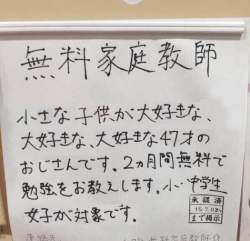 無料家庭教師
小さな子供が大好きな、
大好きな、大好きな47才の
おじさんです。2ヵ月間無料で
勉強をお教えします。小・中学生
女子が対象です。
承認済
まで掲示